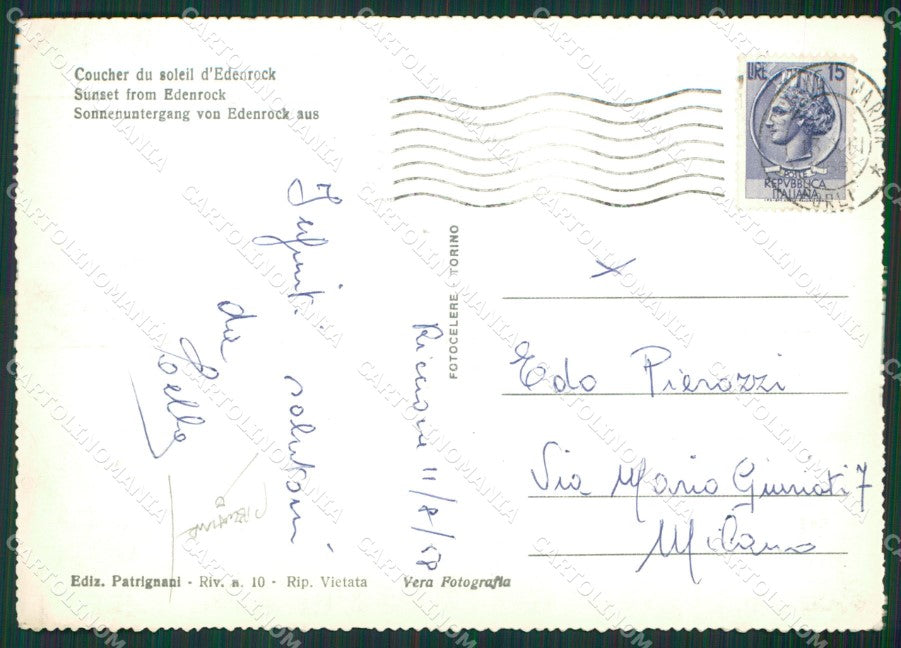 Coucher du soleil d'Edenrock
Sunset from Edenrock
Sonnenuntergang von Edenrock aus
LIRE 15
POSTE
REPVBBLICA
ITALIANA
MARINA
FORLI
Infiniti saluti
da
FOTOCELERE - TORINO
Riccione 11/8/58
X
Edo Pierozzi
Via Mario 7
Milano
Ediz. Patrignani - Riv. n. 10 - Rip. Vietata
Vera Fotografia
CARTOLINOMANIA